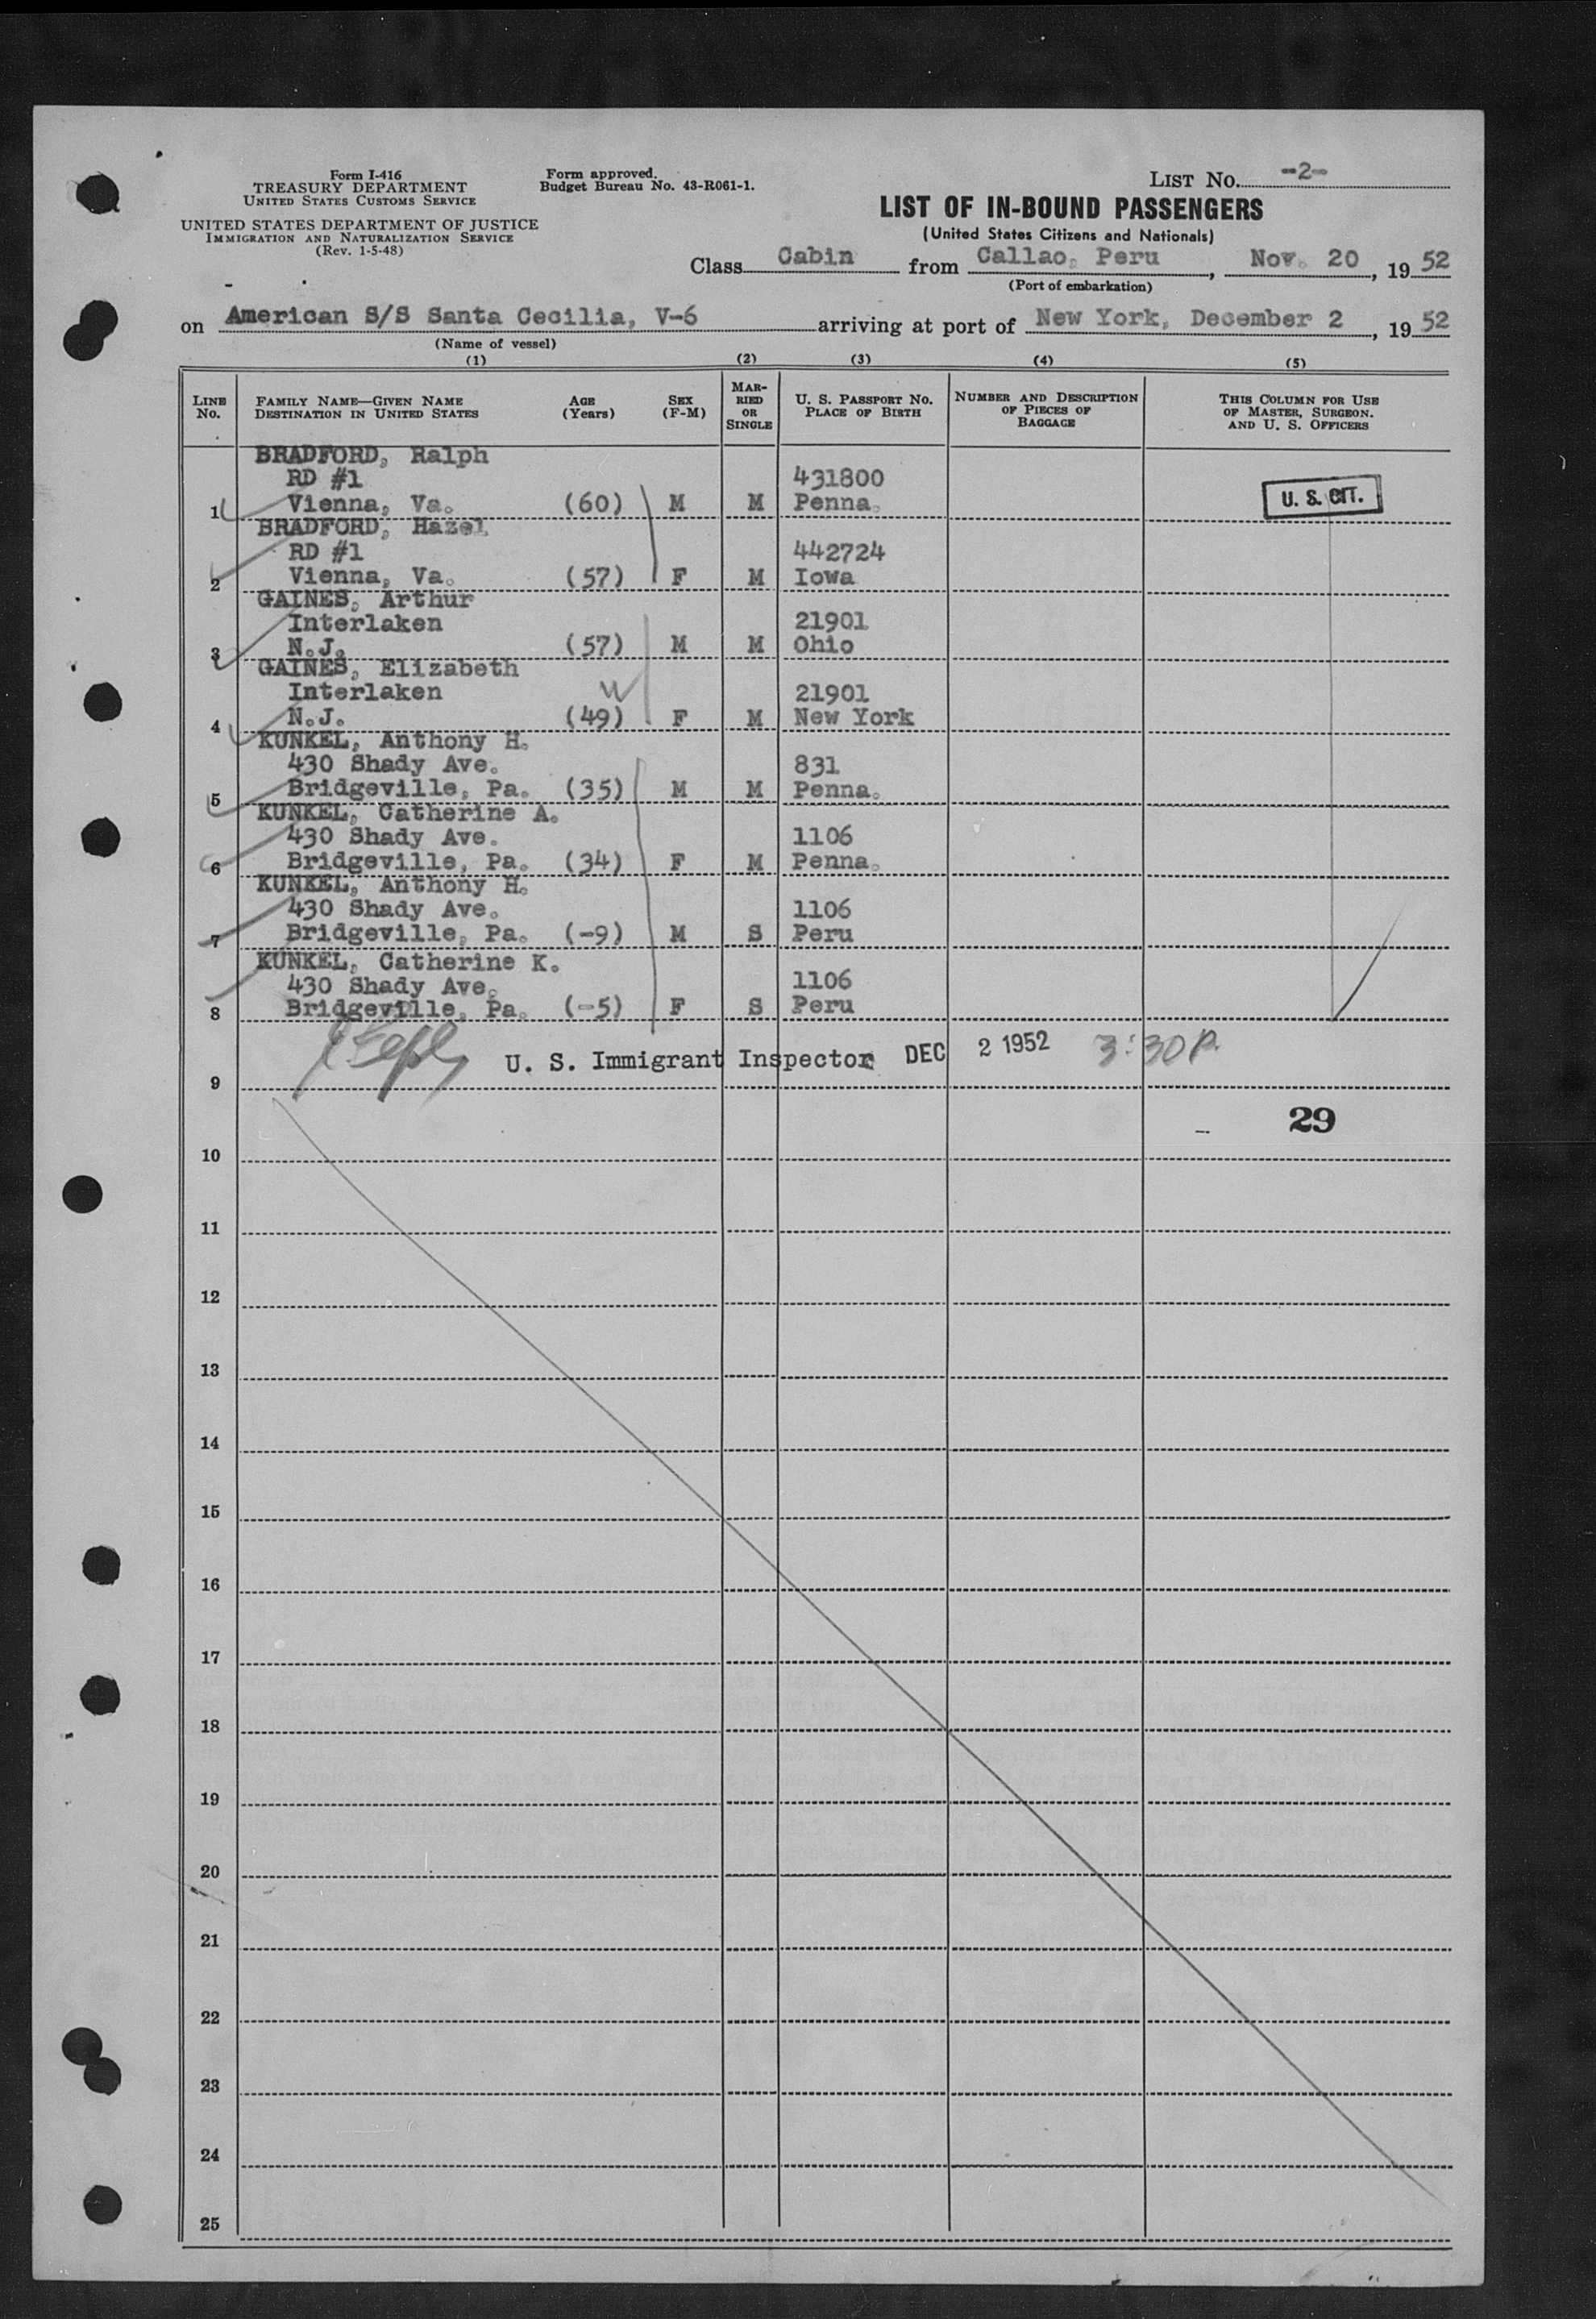 Form I-416
TREASURY DEPARTMENT
UNITED STATES CUSTOMS SERVICE
UNITED STATES DEPARTMENT OF JUSTICE
IMMIGRATION AND NATURALIZATION SERVICE
(Rev. 1-5-48)
Form approved.
Budget Bureau No. 43-R061-1.
LIST No. -2-
LIST OF IN-BOUND PASSENGERS
(United States Citizens and Nationals)
Class Cabin from Callao, Peru, Nov. 20, 1952
(Port of embarkation)
on American S/S Santa Cecilia, V-6 arriving at port of New York, December 2, 1952
(Name of vessel)
(1) (2) (3) (4) (5)
LINE No. FAMILY NAME—GIVEN NAME DESTINATION IN UNITED STATES AGE (Years) SEX (F-M) MARRIED OR SINGLE U. S. PASSPORT No. PLACE OF BIRTH NUMBER AND DESCRIPTION OF PIECES OF BAGGAGE THIS COLUMN FOR USE OF MASTER, SURGEON. AND U. S. OFFICERS
BRADFORD, Ralph
RD #1 431800
1 Vienna, Va. (60) M M Penna. U. S. CIT.
BRADFORD, Hazel
RD #1 442724
2 Vienna, Va. (57) F M Iowa
GAINES, Arthur
Interlaken 21901
3 N.J. (57) M M Ohio
GAINES, Elizabeth
Interlaken 21901
4 N.J. (49) F M New York
KUNKEL, Anthony H.
430 Shady Ave. 831
5 Bridgeville, Pa. (35) M M Penna.
KUNKEL, Catherine A.
430 Shady Ave. 1106
6 Bridgeville, Pa. (34) F M Penna.
KUNKEL, Anthony H.
430 Shady Ave. 1106
7 Bridgeville, Pa. (-9) M S Peru
KUNKEL, Catherine K.
430 Shady Ave. 1106
8 Bridgeville, Pa. (-5) F S Peru
U. S. Immigrant Inspector DEC 2 1952 3:30 P.
9
29
10
11
12
13
14
15
16
17
18
19
20
21
22
23
24
25